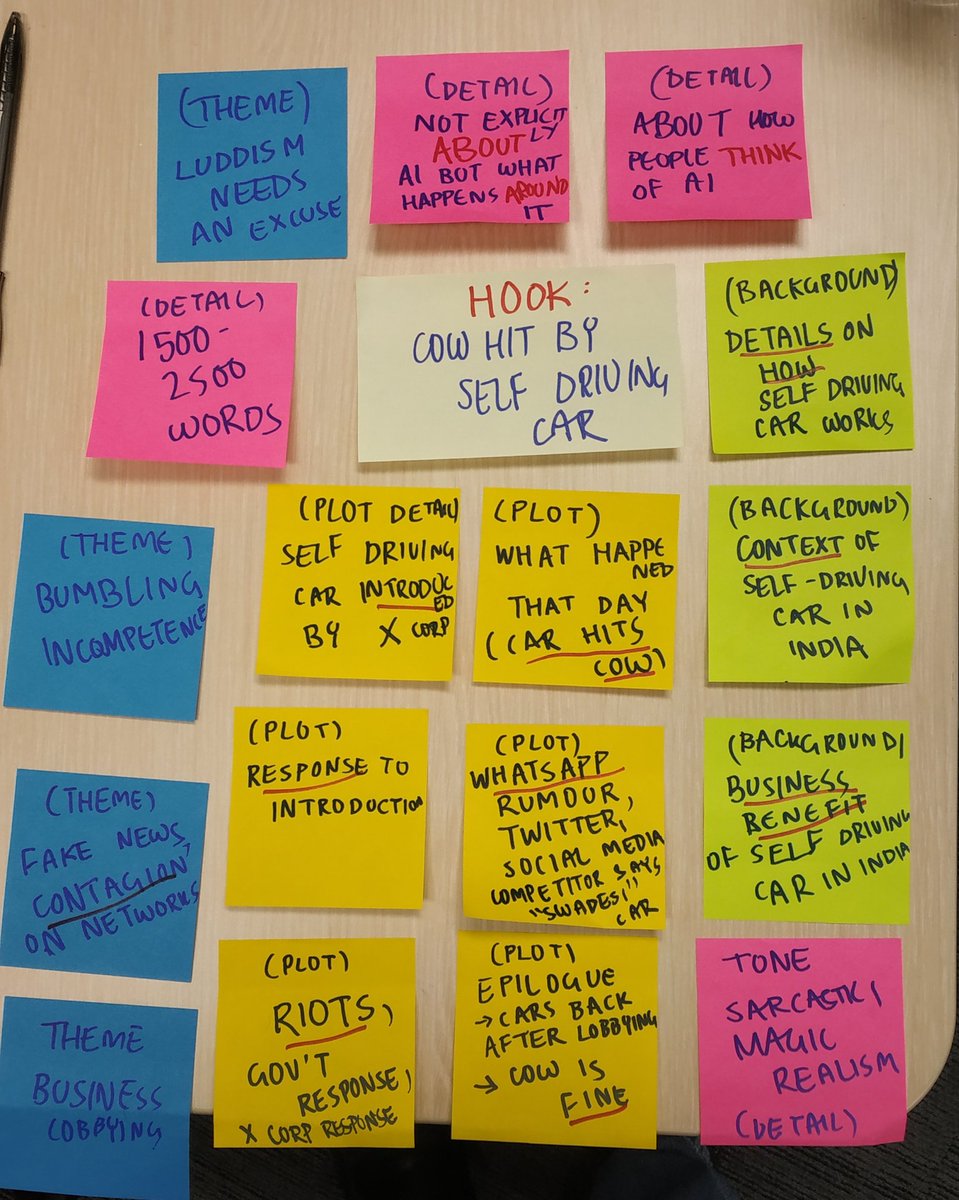 (THEME)
LUDDISM
NEEDS
AN EXCUSE
(DETAIL)
NOT EXPLICITLY
ABOUT
AI BOT WHAT
HAPPENS AROUND
IT
(DETAIL)
ABOUT HOW
PEOPLE THINK
OF AI
(DETAIL)
1500-
2500
WORDS
HOOK:
COW HIT BY
SELF DRIVING
CAR
(BACKGROUND)
DETAILS ON
HOW
SELF DRIVING
CAR WORKS
(THEME)
BUMBLING
INCOMPETENCE
(PLOT DETAIL)
SELF DRIVING
CAR INTRODUCED
BY X CORP
(PLOT)
WHAT HAPPENED
THAT DAY
(CAR HITS
COW)
(BACKGROUND)
CONTEXT OF
SELF-DRIVING
CAR IN
INDIA
(THEME)
FAKE NEWS,
CONTAGION
ON NETWORKS
(PLOT)
RESPONSE TO
INTRODUCTION
(PLOT)
WHATSAPP
RUMOUR,
TWITTER,
SOCIAL MEDIA
COMPETITOR SAYS
"SWADESI"
CAR
(BACKGROUND)
BUSINESS
BENEFIT
OF SELF DRIVING
CAR IN INDIA
THEME
BUSINESS
LOBBYING
(PLOT)
RIOTS,
GOV'T
RESPONSE,
X CORP RESPONSE
(PLOT)
EPILOGUE
→ CARS BACK
AFTER LOBBYING
→ COW IS
FINE
TONE
SARCASTIC,
MAGIC
REALISM
(DETAIL)